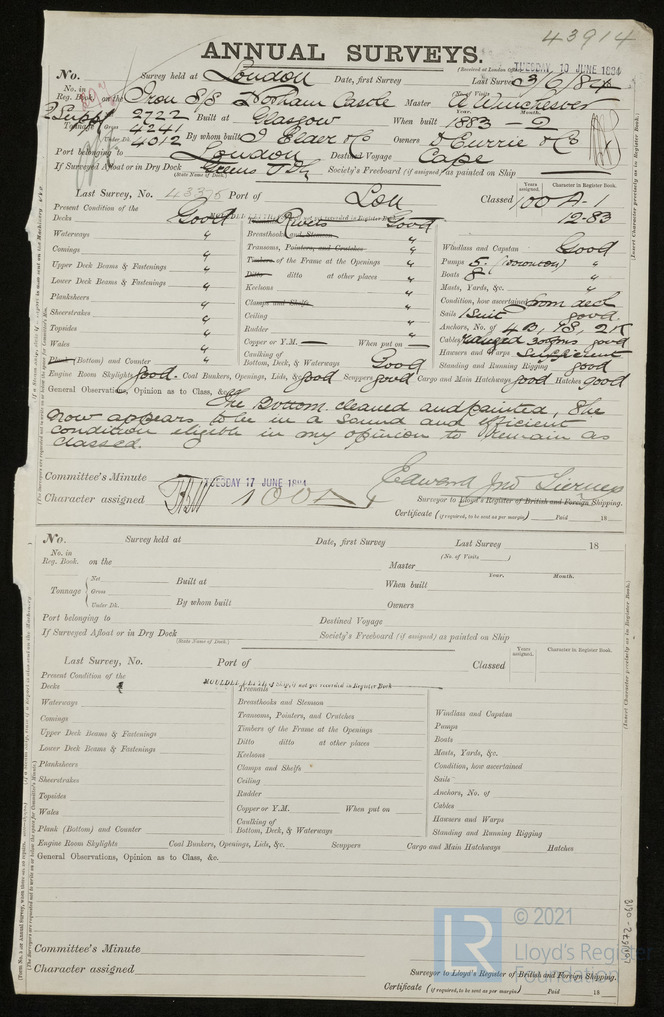 43914
ANNUAL SURVEYS.
(Received at London Office
TUESDAY 10 JUNE 1884
No. Survey held at London Date, first Survey Last Survey 3/6/84
No. in Reg. Book. on the Iron S/S Norham Castle Master A Winchester
(No. of Visits Year. Month.
2722 Built at Glasgow When built 1883 - 2
Tonnage Gross 4241
Under Dk. 4012 By whom built J. Elder & Co Owners D Currie & Co
Port belonging to London Destined Voyage Cape
If Surveyed Afloat or in Dry Dock Greens
(State Name of Dock.)
Society's Freeboard (if assigned) as painted on Ship
Last Survey, No. 43376 Port of Lon Classed 100 A-1
Years assigned. Character in Register Book.
12-83
Present Condition of the
Decks Good Rivets Good
Waterways " Breasthooks and Stemson "
Comings " Transoms, Pointers, and Crutches "
Upper Deck Beams & Fastenings " Timbers of the Frame at the Openings "
Lower Deck Beams & Fastenings " Ditto ditto at other places "
Planksheers " Keelsons "
Sheerstrakes " Clamps and Shelfs "
Topsides " Ceiling "
Wales " Rudder "
Plank (Bottom) and Counter " Copper or Y.M. When put on
Caulking of Bottom, Deck, & Waterways Good
Windlass and Capstan Good
Pumps 5 "
Boats 8 "
Masts, Yards, &c. "
Condition, how ascertained from deck
Sails 1 Suit good.
Anchors, No. of 4B, 1S, 2K
Cables ranged good
Hawsers and Warps Sufficient
Standing and Running Rigging good
Engine Room Skylights good. Coal Bunkers, Openings, Lids, &c. good Scuppers good Cargo and Main Hatchways good Hatches good
General Observations, Opinion as to Class, &c.
The Bottom cleaned and painted, She
now appears to be in a sound and efficient
condition eligible in my opinion to remain as
classed.
Committee's Minute TUESDAY 17 JUNE 1884
Edward Jno Tierney
Character assigned 100A1
Surveyor to Lloyd's Register of British and Foreign Shipping.
Certificate (if required, to be sent as per margin) Paid 18
No. Survey held at Date, first Survey Last Survey 18
No. in Reg. Book. on the Master
(No. of Visits ) Year. Month.
Tonnage Net Gross Under Dk. Built at When built
By whom built Owners
Port belonging to Destined Voyage
If Surveyed Afloat or in Dry Dock Society's Freeboard (if assigned) as painted on Ship
(State Name of Dock.)
Last Survey, No. Port of Classed
Years assigned. Character in Register Book.
Present Condition of the
Decks Treenails
Waterways Breasthooks and Stemson
Comings Transoms, Pointers, and Crutches
Upper Deck Beams & Fastenings Timbers of the Frame at the Openings
Lower Deck Beams & Fastenings Ditto ditto at other places
Planksheers Keelsons
Sheerstrakes Clamps and Shelfs
Topsides Ceiling
Wales Rudder
Plank (Bottom) and Counter Copper or Y.M. When put on
Caulking of Bottom, Deck, & Waterways
Windlass and Capstan
Pumps
Boats
Masts, Yards, &c.
Condition, how ascertained
Sails
Anchors, No. of
Cables
Hawsers and Warps
Standing and Running Rigging
Engine Room Skylights Coal Bunkers, Openings, Lids, &c. Scuppers Cargo and Main Hatchways Hatches
General Observations, Opinion as to Class, &c.
Committee's Minute
Character assigned
Surveyor to Lloyd's Register of British and Foreign Shipping.
Certificate (if required, to be sent as per margin) Paid 18
(Insert Character precisely as in Register Book.)
(Insert Character precisely as in Register Book.)
LR © 2021
Lloyd's Register
Foundation